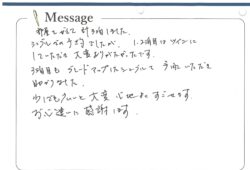 Message
部屋をかえて計3泊しました。
シングルの予約でしたが、1.2泊目はツインに
していただき大変ありがたかったです。
3泊目もグレードアップしたシングルで予約いただき
助かりました。
大変心地よくすごせます。
お心遣いに感謝します。